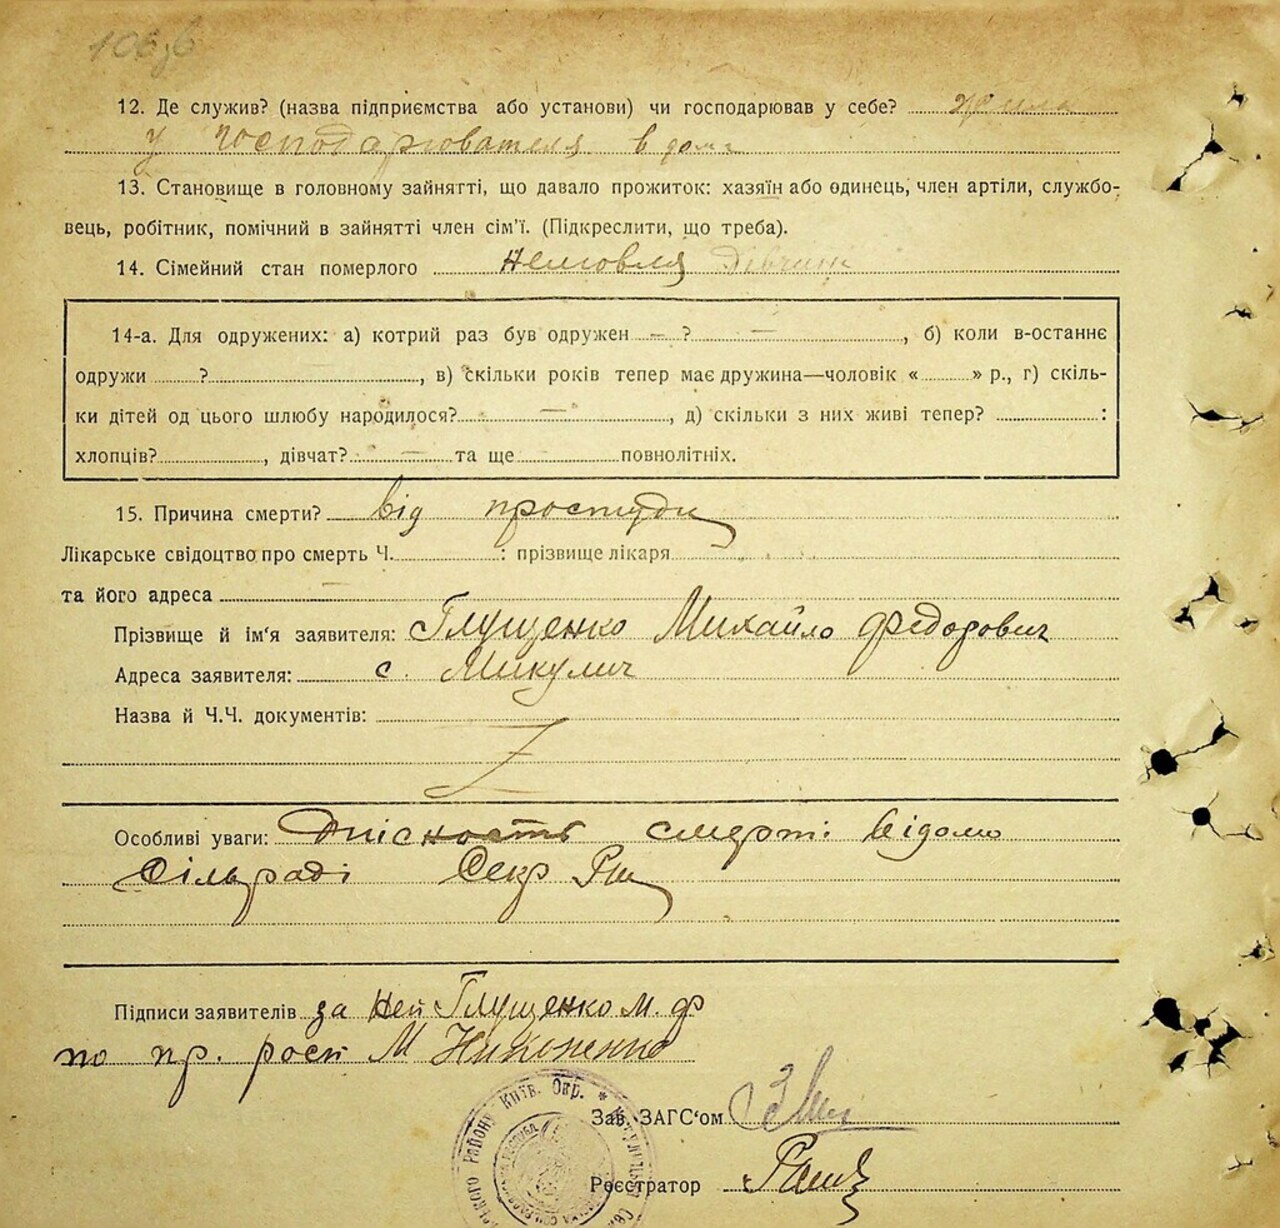 106зв
12. Де служив? (назва підприємства або установи) чи господарював у себе? жила
у господарювателя в домі
13. Становище в головному зайнятті, що давало прожиток: хазяїн або одинець, член артілі, службо-
вець, робітник, помічний в зайнятті член сім'ї. (Підкреслити, що треба).
14. Сімейний стан померлого Немовля Дівчина
14-а. Для одружених: а) котрий раз був одружен — ? —, б) коли в-останнє
одружи ?, в) скільки років тепер має дружина—чоловік « » р., г) скіль-
ки дітей од цього шлюбу народилося? —, д) скільки з них живі тепер? :
хлопців? , дівчат? — та ще — повнолітніх.
15. Причина смерти? від простуди
Лікарське свідоцтво про смерть Ч. : прізвище лікаря
та його адреса —
Прізвище й ім'я заявителя: Глущенко Михайло Федорович
Адреса заявителя: с. Микулич
Назва й Ч.Ч. документів:
Особливі уваги: смерті відомо
Сільраді Секр
Підписи заявителів за Глущенко М. Ф
по пр. рост М Никоненко
Зав. ЗАГС'ом
Реєстратор
РАЙОНУ Київ. Окр. *